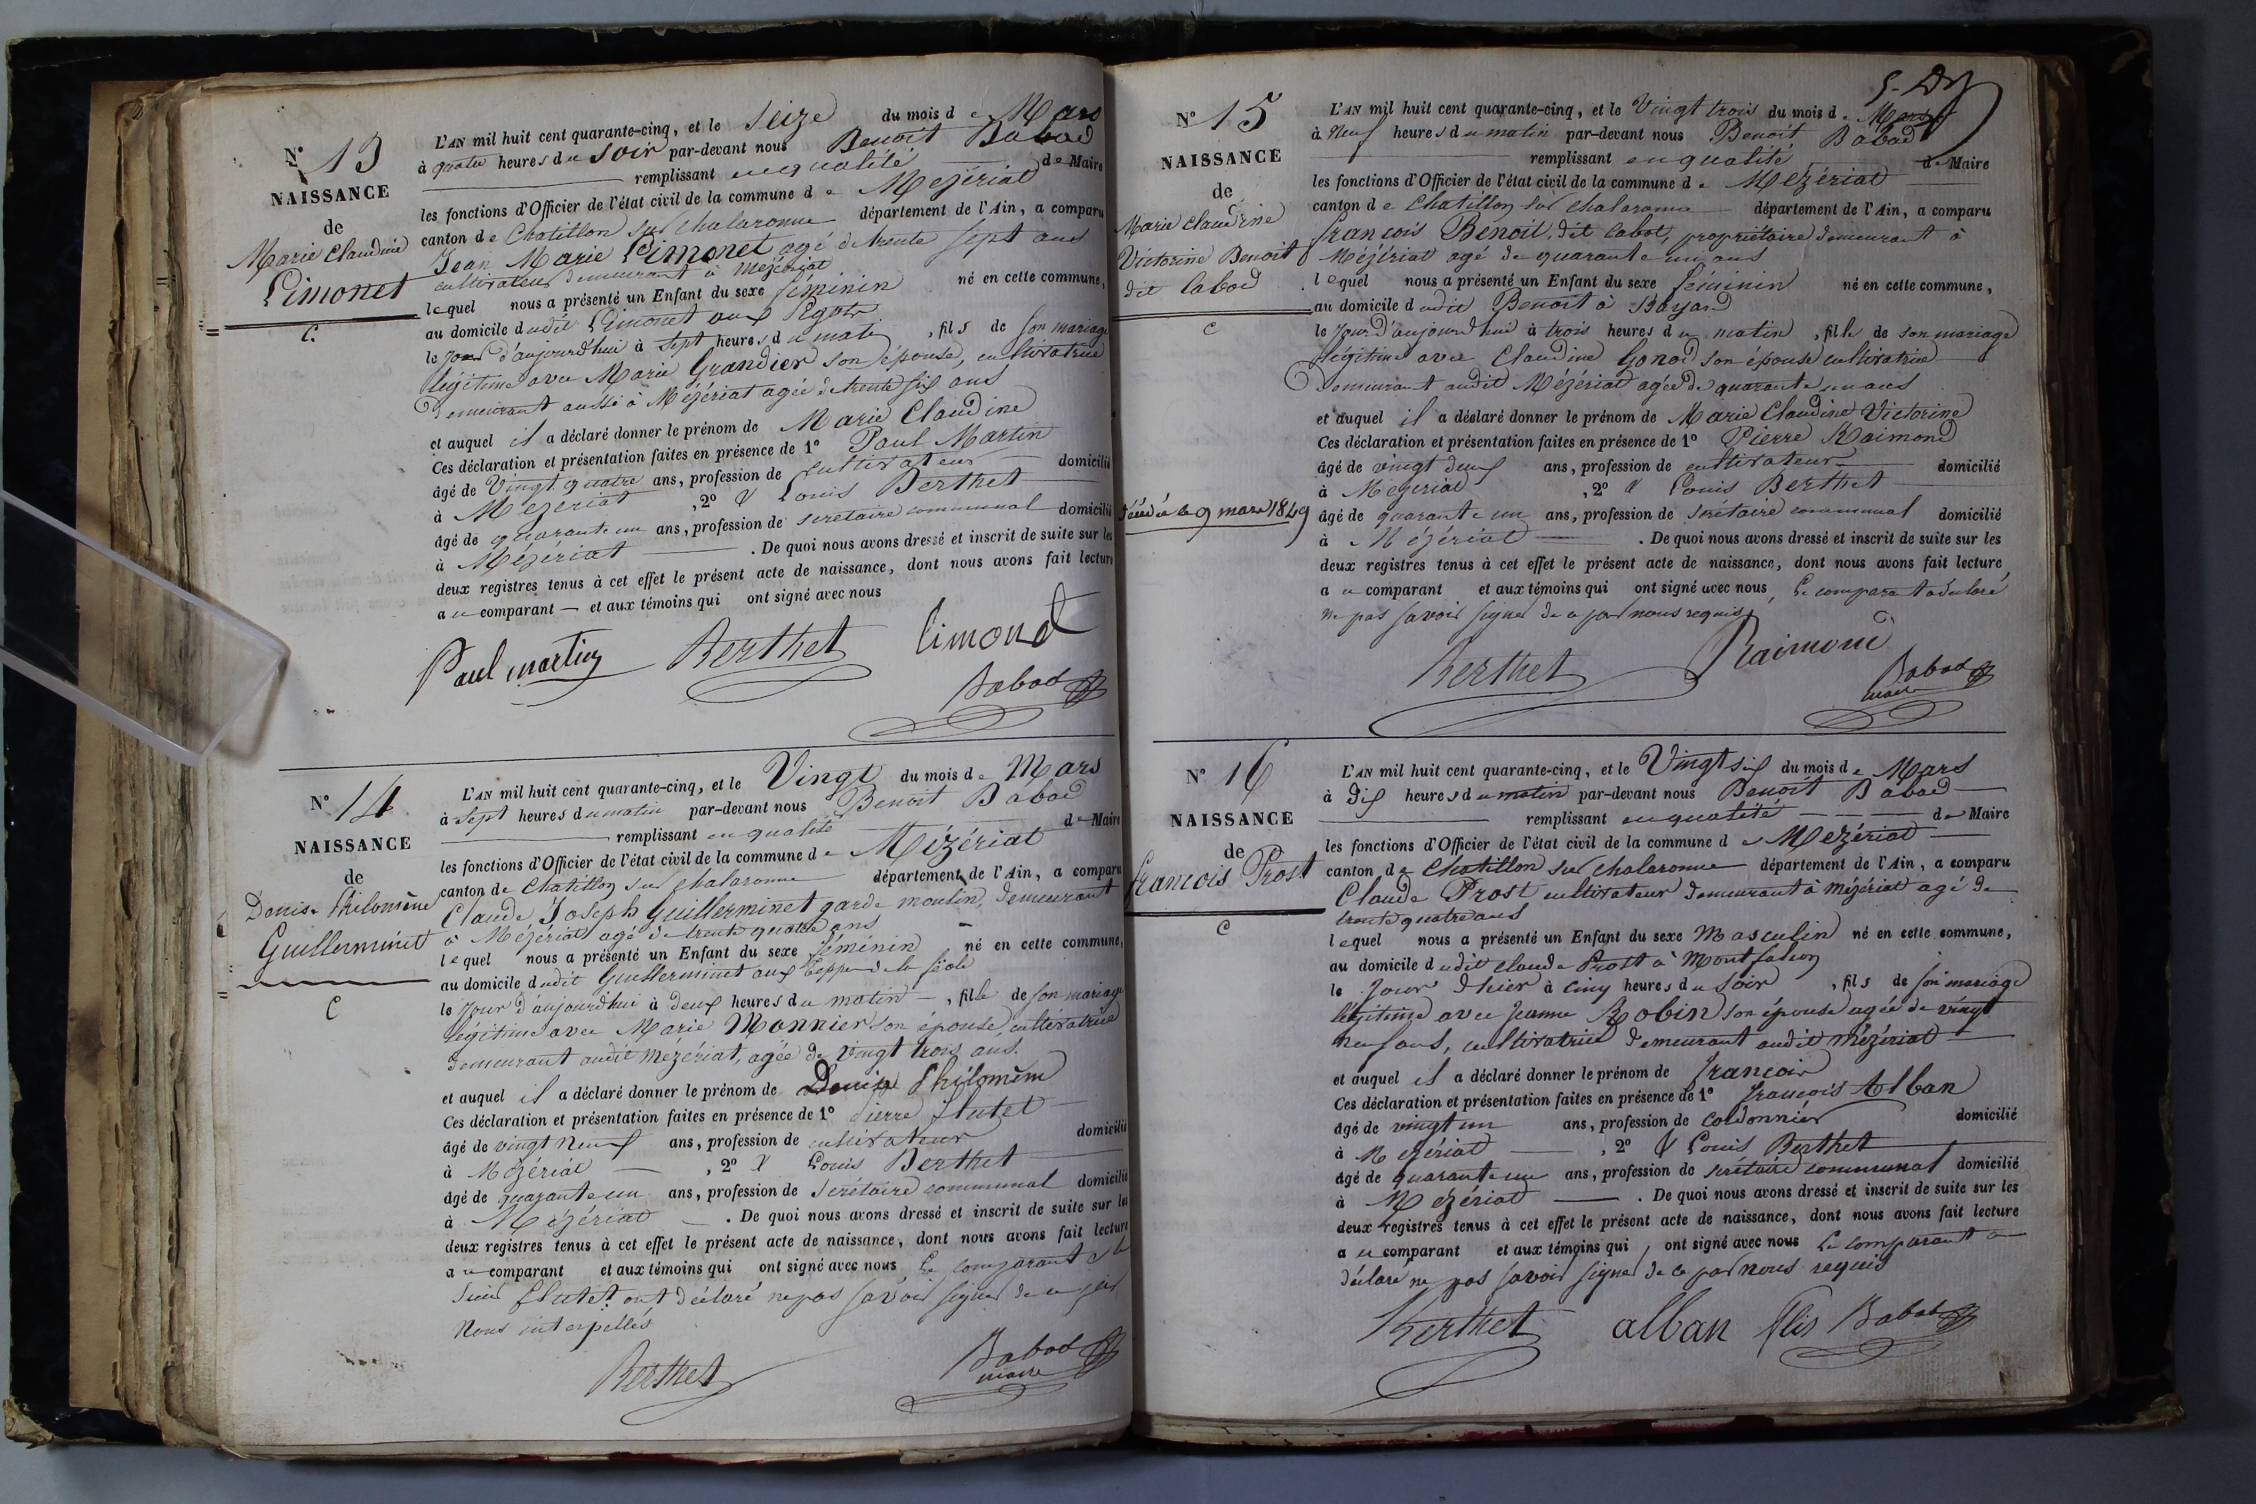 N° 13
NAISSANCE
de
Marie Claudine
Limonet
C
L'AN mil huit cent quarante-cinq, et le Seize du mois de Mars
à quatre heures du soir par-devant nous Benoit Babad
remplissant en qualité de Maire
les fonctions d'Officier de l'état civil de la commune de Mézériat
canton de Chatillon sur Chalaronne département de l'Ain, a comparu
Jean Marie Limonet agé de trente sept ans
cultivateur demeurant à Mézériat
lequel nous a présenté un Enfant du sexe féminin né en cette commune,
au domicile dudit Limonet aux
le jour d'aujourd'hui à sept heures du matin, fils de son mariage
légitime avec Marie Grandier son épouse, cultivatrice
demeurant aussi à Mézériat agée de trente six ans
et auquel il a déclaré donner le prénom de Marie Claudine
Ces déclaration et présentation faites en présence de 1° Paul Martin
âgé de Vingt quatre ans, profession de cultivateur domicilié
à Mézériat, 2° & Louis Berthet
âgé de quarante un ans, profession de secrétaire communal domicilié
à Mézériat. De quoi nous avons dressé et inscrit de suite sur les
deux registres tenus à cet effet le présent acte de naissance, dont nous avons fait lecture
au comparant et aux témoins qui ont signé avec nous
Paul martin Berthet limonet
Babad
N° 14
NAISSANCE
de
Denise Philomène
Guillerminet
C
L'AN mil huit cent quarante-cinq, et le Vingt du mois de Mars
à sept heures du matin par-devant nous Benoit Babad
remplissant en qualité de Maire
les fonctions d'Officier de l'état civil de la commune de Mézériat
canton de Chatillon sur Chalaronne département de l'Ain, a comparu
Claude Joseph Guillerminet garde moulin, demeurant
à Mézériat agé de trente quatre ans
lequel nous a présenté un Enfant du sexe féminin né en cette commune,
au domicile dudit Guillerminet aux de la
le jour d'aujourd'hui à deux heures du matin, fille de son mariage
légitime avec Marie Monnier son épouse, cultivatrice
demeurant audit Mézériat, agée de vingt trois ans.
et auquel il a déclaré donner le prénom de Denise Philomène
Ces déclaration et présentation faites en présence de 1° Pierre Flutet
âgé de vingt neuf ans, profession de cultivateur domicilié
à Mézériat, 2° & Louis Berthet
âgé de quarante un ans, profession de secrétaire communal domicilié
à Mézériat. De quoi nous avons dressé et inscrit de suite sur les
deux registres tenus à cet effet le présent acte de naissance, dont nous avons fait lecture
au comparant et aux témoins qui ont signé avec nous Le comparant & le
Flutet ont déclaré ne pas savoir signer de ce par
Nous interpellés
Berthet Babad
maire
N° 15
NAISSANCE
de
Marie Claudine
Victorine Benoit
dit Cabod
C
Décédée le 9 mars 1849
L'AN mil huit cent quarante-cinq, et le Vingt trois du mois de Mars
à Neuf heures du matin par-devant nous Benoit Babad
remplissant en qualité de Maire
les fonctions d'Officier de l'état civil de la commune de Mézériat
canton de Chatillon sur Chalaronne département de l'Ain, a comparu
françois Benoit, dit Cabot, propriétaire demeurant à
Mézériat agé de quarante un ans
lequel nous a présenté un Enfant du sexe féminin né en cette commune,
au domicile dudit Benoit à Bayard
le jour d'aujourd'hui à trois heures du matin, fille de son mariage
légitime avec Claudine Gonod son épouse cultivatrice
Demeurant audit Mézériat agée de quarante un ans
et auquel il a déclaré donner le prénom de Marie Claudine Victorine
Ces déclaration et présentation faites en présence de 1° Pierre Raimond
âgé de vingt deux ans, profession de cultivateur domicilié
à Mézériat, 2° & Louis Berthet
âgé de quarante un ans, profession de secrétaire communal domicilié
à Mézériat. De quoi nous avons dressé et inscrit de suite sur les
deux registres tenus à cet effet le présent acte de naissance, dont nous avons fait lecture
au comparant et aux témoins qui ont signé avec nous, Le comparant a déclaré
ne pas savoir signer de ce par nous requis
Berthet Raimond
Babad
maire
N° 16
NAISSANCE
de
francois Prost
C
L'AN mil huit cent quarante-cinq, et le Vingt six du mois de Mars
à Dix heures du matin par-devant nous Benoit Babad
remplissant en qualité de Maire
les fonctions d'Officier de l'état civil de la commune de Mézériat
canton de Chatillon sur Chalaronne département de l'Ain, a comparu
Claude Prost cultivateur demeurant à mézériat agé de
trente quatre ans
lequel nous a présenté un Enfant du sexe Masculin né en cette commune,
au domicile dudit Claude Prost à Montfalcon
le jour d'hier à cinq heures du soir, fils de son mariage
légitime avec Jeanne Robin son épouse agée de vingt
neuf ans, cultivatrice demeurant audit Mézériat
et auquel il a déclaré donner le prénom de françois
Ces déclaration et présentation faites en présence de 1° françois Alban
âgé de vingt un ans, profession de cordonnier domicilié
à Mézériat, 2° & Louis Berthet
âgé de quarante un ans, profession de secrétaire communal domicilié
à Mézériat. De quoi nous avons dressé et inscrit de suite sur les
deux registres tenus à cet effet le présent acte de naissance, dont nous avons fait lecture
au comparant et aux témoins qui ont signé avec nous Le comparant a
déclaré ne pas savoir signer de ce par nous requis
Berthet alban flis Babad